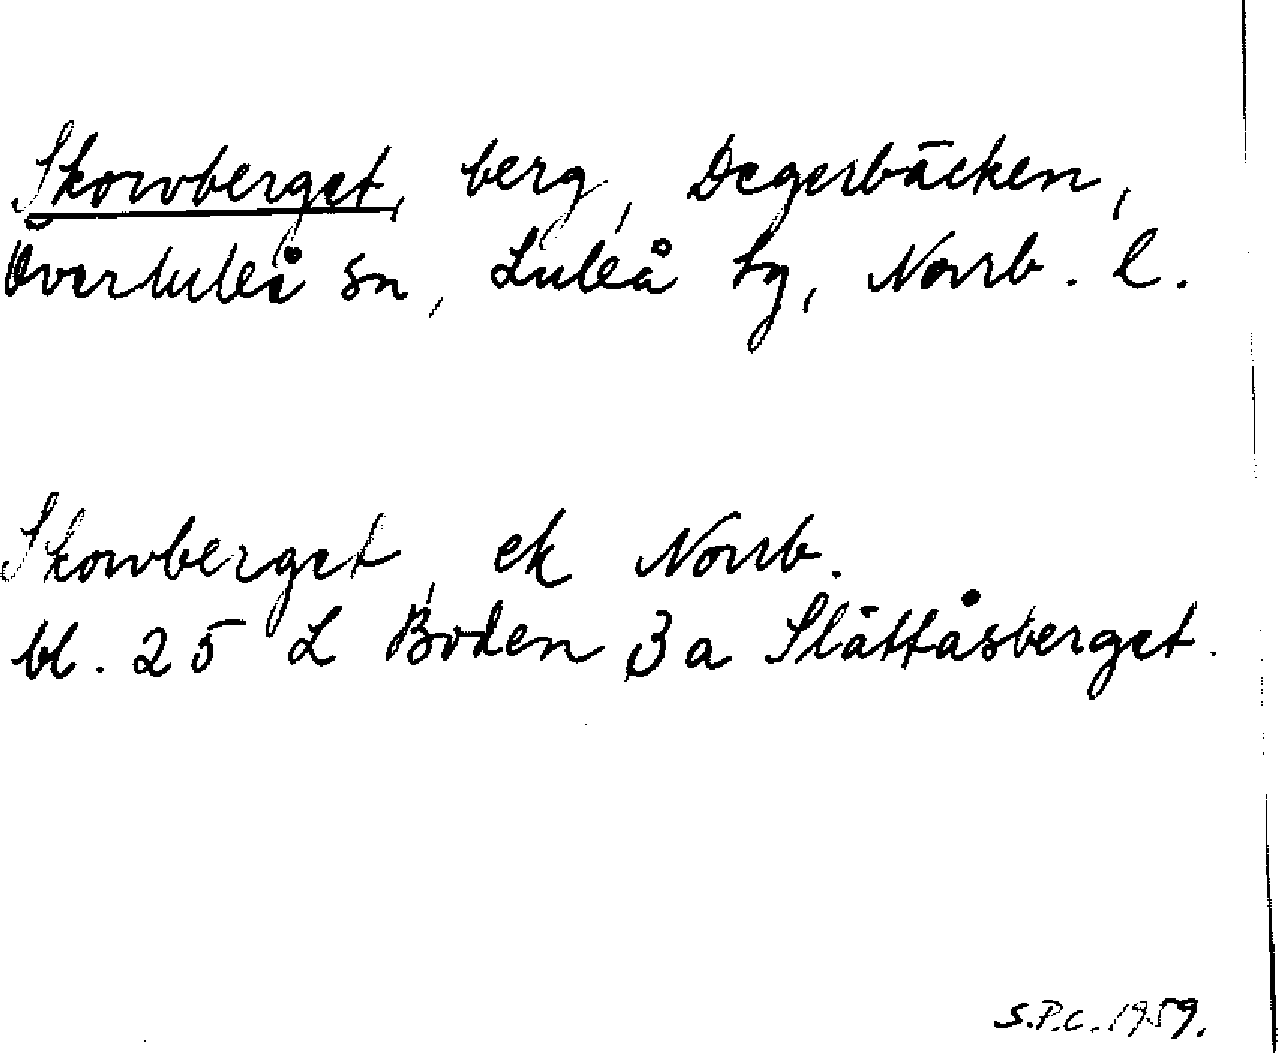 Skorvberget, berg, Degerbäcken,
Överluleå sn, Luleå tg, Norrb. l.
Skorvberget, ek Norrb.
bl. 25 L Boden 3a Slåttåsberget.
S.P.C. 1959.